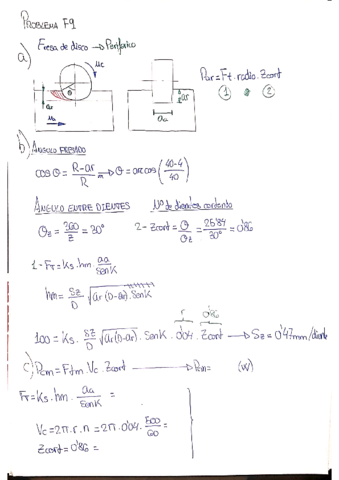 PROBLEMA F9
a) Fresa de disco → Periférico
Uc
θ
ar
ar
aa
Par = Ft. radio. Zcont
① • ②
b) ÁNGULO FRESADO
cos θ = R-ar / R → θ = arc cos (40-4 / 40)
ÁNGULO ENTRE DIENTES Nº de dientes cortando
θz = 360 / z = 30° 2- Zcont = θ / θz = 25'84 / 30° = 0'86
1- Ft = Ks. hm. aa / SenK
hm = Sz / D √ar(D-ar). SenK
r 0'86
100 = Ks. Sz / D √ar(D-ar). SenK. 0'04. Zcont → Sz = 0'47 mm/diente
c) Pcm = Ftm. Vc. Zcont → Pcm = (W)
Ft = Ks. hm. aa / SenK =
Vc = 2π. r. n = 2π. 0'04. 500 / 60 =
Zcont = 0'86 =